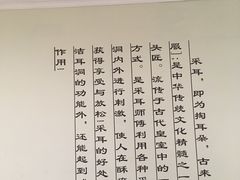 采耳，即为掏耳朵，古来
服!是中华传统文化精髓之一
头匠。流传于古代皇室中的一
方式。是采耳师傅利用各种采
洞内外进行刺激，使人在酥痒
获得享受与放松!采耳的好处
洁耳洞的功能外，还能起到
作用!